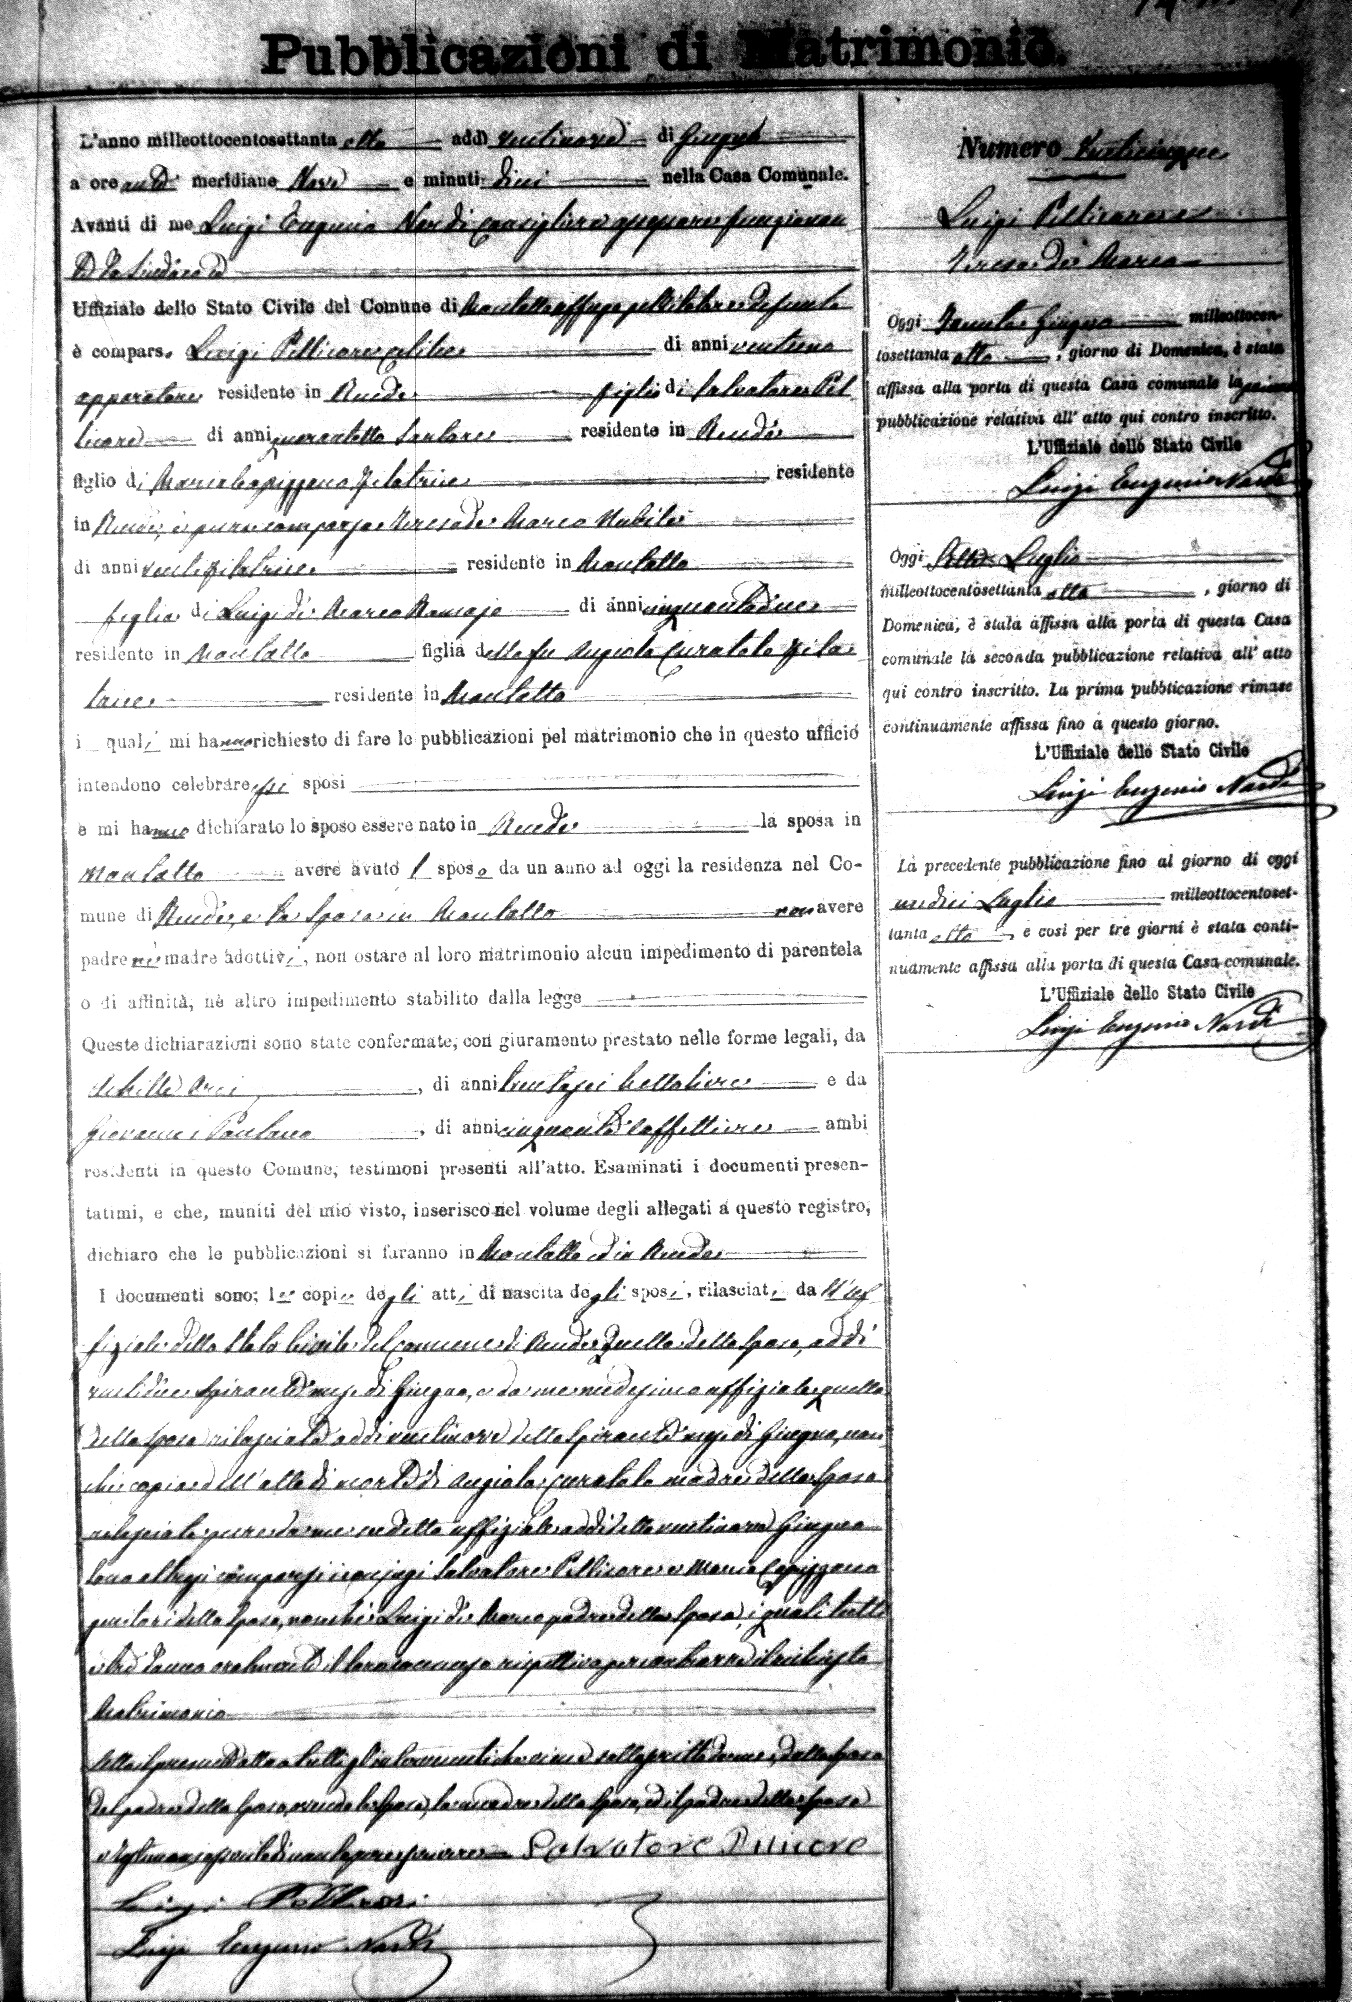 Pubblicazioni di Matrimonio.
L'anno milleottocentosettanta otto addì ventinove di Giugno
a ore anti meridiane Nove e minuti dieci nella Casa Comunale.
Avanti di me Luigi Eugenio Nardi Consigliere funzionan
te da Sindaco
Uffiziale dello Stato Civile del Comune di Montalto Uffugo
è compars o Luigi Pellicore celibe di anni ventuno
residente in Rende figlio di Salvatore Pel
licore di anni quarantotto Sartore residente in Rende
figlio di Maria Capizzano filatrice residente
in Rende, è pure comparsa Teresa de Marco Nubile
di anni venti filatrice residente in Montalto
figlia di Luigi di Marco di anni cinquantadue
residente in Montalto figlia della fu Angiola Curatolo fila
trice residente in Montalto
i quali mi hanno richiesto di fare le pubblicazioni pel matrimonio che in questo ufficio
intendono celebrare essi sposi
e mi hanno dichiarato lo sposo essere nato in Rende la sposa in
Montalto avere avuto l sposo da un anno ad oggi la residenza nel Co-
mune di Rende, e la Sposa in Montalto non avere
padre nè madre adottivi, non ostare al loro matrimonio alcun impedimento di parentela
o di affinità, nè altro impedimento stabilito dalla legge
Queste dichiarazioni sono state confermate, con giuramento prestato nelle forme legali, da
Achille Arci, di anni trentasei bettoliere e da
Giovanni Pantano, di anni cinquanta Caffettiere ambi
residenti in questo Comune, testimoni presenti all'atto. Esaminati i documenti presen-
tatimi, e che, muniti del mio visto, inserisco nel volume degli allegati a questo registro,
dichiaro che le pubblicazioni si faranno in Montalto ed in Rende
I documenti sono; le copie degli atti di nascita degli sposi, rilasciati da ll'uf
fiziale dello Stato Civile del Comune di Rende quella dello Sposo, addì
ventidue spirante mese di Giugno, e da me medesimo uffiziale quella
della Sposa rilasciata addì ventinove dello spirante mese di Giugno, non
chè copia dell'atto di morte di Angiola Curatolo madre della Sposa
rilasciata pure da me sudetto uffiziale addì detto ventinove Giugno
Sono altresì comparsi i coniugi Salvatore Pellicore e Maria Capizzano
genitori dello Sposo, nonchè Luigi de Marco padre della Sposa, i quali tutti
e tre danno oralmente il loro consenso rispettivo per contrarre il richiesto
Matrimonio
dello Sposo
del padre dello Sposo, la Sposa, la madre dello Sposo, ed il padre della Sposa
Salvatore
Luigi
Luigi Eugenio Nardi
Numero Venticinque
Luigi Pellicore
Teresa de Marco
Oggi Trenta Giugno milleottocen-
tosettanta otto, giorno di Domenica, è stata
affissa alla porta di questa Casa comunale la prima
pubblicazione relativa all' atto qui contro inscritto.
L'Uffiziale dello Stato Civile
Luigi Eugenio Nardi
Oggi Sette Luglio
milleottocentosettanta otto, giorno di
Domenica, è stata affissa alla porta di questa Casa
comunale la seconda pubblicazione relativa all' atto
qui contro inscritto. La prima pubblicazione rimase
continuamente affissa fino a questo giorno.
L'Uffiziale dello Stato Civile
Luigi Eugenio Nardi
La precedente pubblicazione fino al giorno di oggi
undici Luglio milleottocentoset-
tanta otto, e così per tre giorni è stata conti-
nuamente affissa alla porta di questa Casa comunale.
L'Uffiziale dello Stato Civile
Luigi Eugenio Nardi